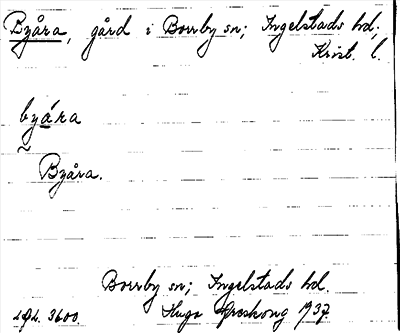 Byåra, gård i Borrby sn; Ingelstads hd,
Krist. l.
byára
~
Byåra.
Borrby sn; Ingelstads hd.
Hugo Areskoug 1937.
3600.